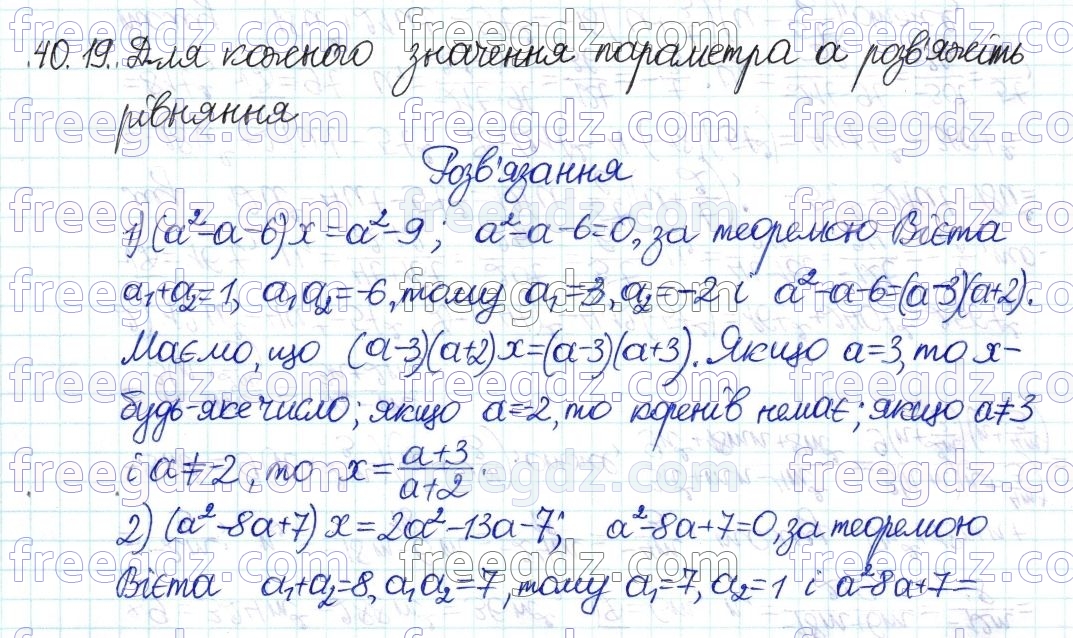 40.19. Для кожного значення параметра а розв'яжіть
рівняння
Розв'язання
1) (a²-a-6)x=a²-9; a²-a-6=0, за теоремою Вієта
a₁+a₂=1, a₁a₂=-6, тому a₁=3, a₂=-2 і a²-a-6=(a-3)(a+2).
Маємо, що (a-3)(a+2)x=(a-3)(a+3). Якщо a=3, то x-
будь-яке число; якщо a=-2, то коренів немає; якщо a≠3
і a≠-2, то x=\frac{a+3}{a+2}.
2) (a²-8a+7)x=2a²-13a-7; a²-8a+7=0, за теоремою
Вієта a₁+a₂=8, a₁a₂=7, тому a₁=7, a₂=1 і a²-8a+7=
freegdz.com